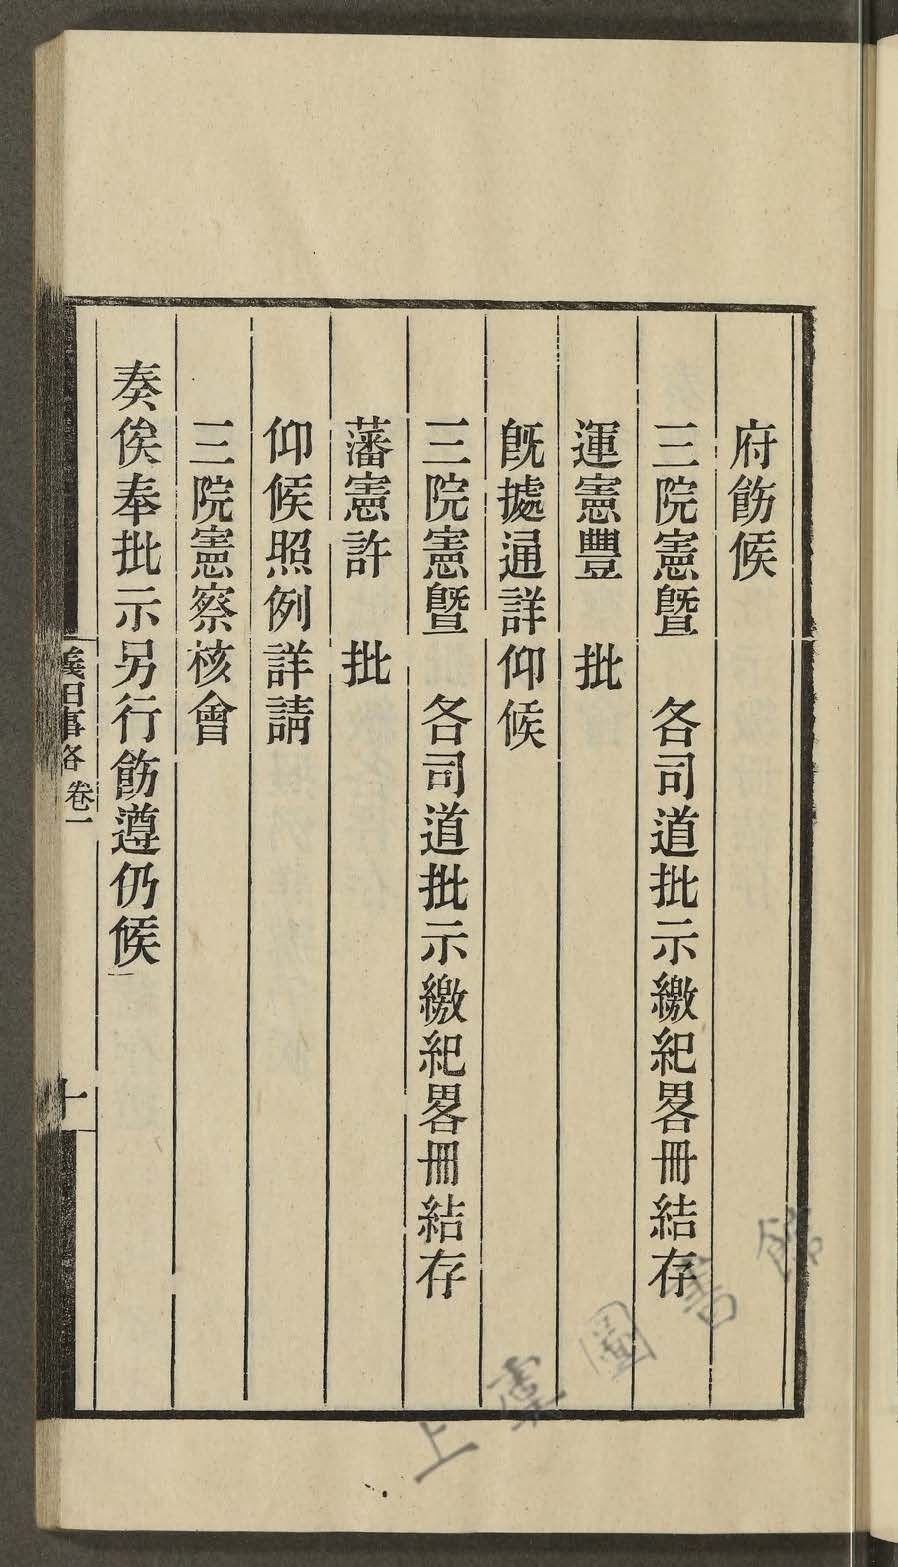 府飭候
三院憲曁　各司道批示繳紀畧冊結存
運憲豐　批
旣據通詳仰候
三院憲曁　各司道批示繳紀畧冊結存
藩憲許　批
仰候照例詳請
三院憲察核會
奏俟奉批示另行飭遵仍候
義田事略 卷一
十
上虞圖書館